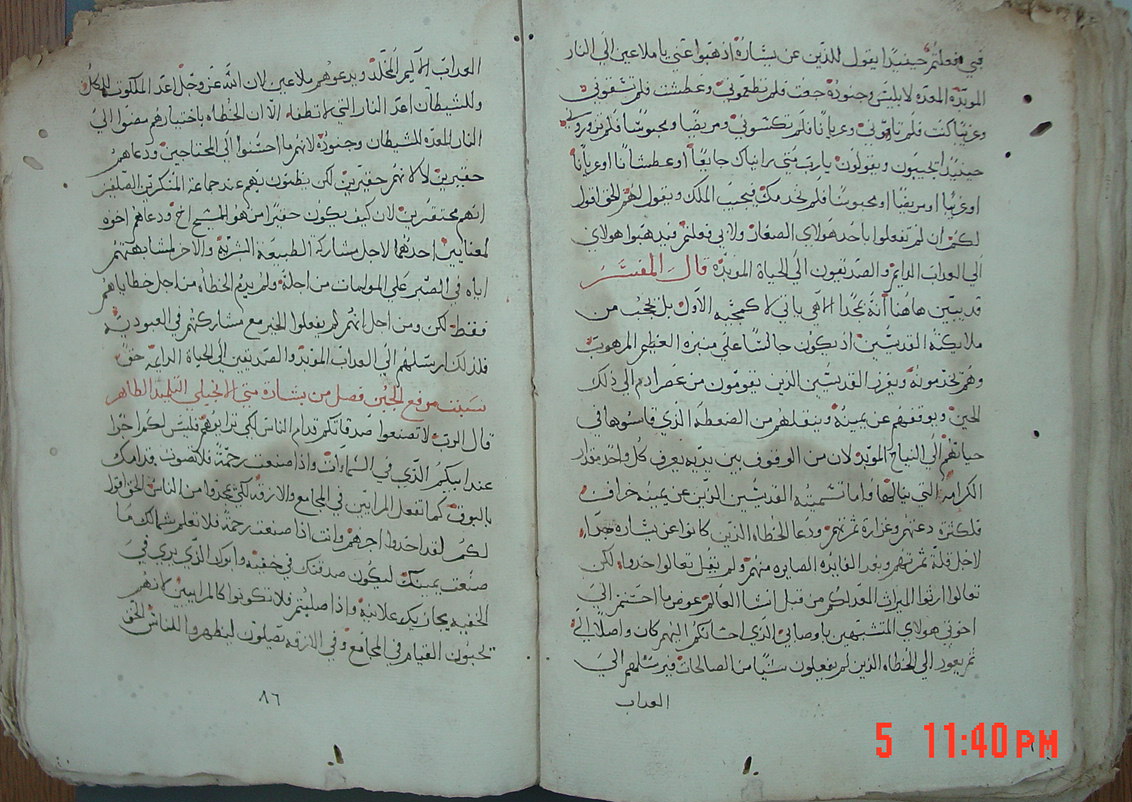 فبي فعلتم حينيذا يقول للذين عن يشاره اذهبوا عني يا ملاعين الى النار
الموبده المعده لابليس وجنوده جعت فلم تطعموني وعطشت فلم تسقوني
وغريبًا كنت فلم تاووني وعريانًا فلم تكسوني ومريضًا ومحبوسًا فلم تزوروني
حينيذ يجيبون ويقولون يا رب متى رايناك جايعًا او عطشانًا او عريانًا
او غريبًا او مريضًا او محبوسًا فلم نخدمك فيجيب الملك ويقول لهم الحق اقول
لكم ان لم تفعلوا باحد هولاي الصغار ولا بي فعلتم فيذهبوا هولاي
الى العداب الدايم والصديقون الى الحياة الموبده قال المفسر
قد يبين هاهنا انه بمجد الاهي ياتي لا كمجيه الاول بل يحجب من
ملايكته القديسين اذ يكون جالسًا على منبره العظيم المرهوب
وهم يخدمونه ويفرز القديسين الذين يقومون من عصر ادم الى ذلك
الحين ويوقفهم عن يمينه وينقلهم من الضغطه الذي قاسوها في
حياتهم الى النياح الموبد لان من الوقوف بين يديه يعرف كل واحد مقدار
الكرامه التي ينالها واما تسميته القديسين الذين عن يمينه خراف
فلكثرة دعتهم وغزارة ثمرتهم ودعا الخطاه الذين كانوا عن يشاره جدا
لاجل قلة ثمرتهم وبور الفايده الصايره منهم ولم يقل تعالوا خذوا لكن
تعالوا ارثوا الميراث المعد لكم من قبل انشا العالم عوض ما احسنتم الى
اخوتي هولاي المتشبهين باوصافي الذي احسانكم اليهم كان واصلًا الي
ثم يعود الى الخطاه الذين لم يفعلون شيًا من الصالحات فيرسلهم الى
العداب
العداب الاليم المخلد ويدعوهم ملاعين لان الله عز وجل اعد الملكوت للكل
وللشيطان اعد النار التي لا تطفا الا ان الخطاه باختيارهم مضوا الى
النار المعده للشيطان وجنوده لانهم ما احسنوا الى المحتاجين ودعاهم
حقيرين لا لانهم حقيرين لكن يظنون بهم عند جماعة المتكبرين الصلفين
انهم محتقرين لان كيف يكون حقيرًا من هو المسيح اخ ودعاهم اخوه
لمعنايين احدهما لاجل مشاركة الطبيعة البشريه والاخر لمشابهتهم
اياه في الصبر على المولمات من اجله ولم يدم الخطاه من اجل خطاياهم
فقط لكن ومن اجل انهم لم يفعلوا الخير مع مشاركتهم في العبوديه
فلذلك ارسلهم الى العداب الموبد والصديقين الى الحياة الدايمه حق
سبت مرفع الجبن فصل من بشارة متى الانجيلي التلميذ الطاهر
قال الرب لا تصنعوا صدقاتكم قدام الناس لكي تراياوهم فليس لكم اجرا
عند ابيكم الذي في السماوات واذا صنعت رحمة فلا تصوت قدامك
بالبوق كما تفعل المرايين في المجامع والازقه لكي يمجدوا من الناس الحق اقول
لكم لقد اخدوا اجرهم وانت اذا صنعت رحمة فلا تعلم شمالك ما
صنعت يمينك ليكون صدقتك في خفيه وابوك الذي يرى في
الخفيه يجازيك علانية واذا صليتم فلا تكونوا كالمرايين لانهم
يحبون القيام في المجامع وفي الازقه يصلون ليظهروا للناس الحق
٨٦
5 11:40 PM